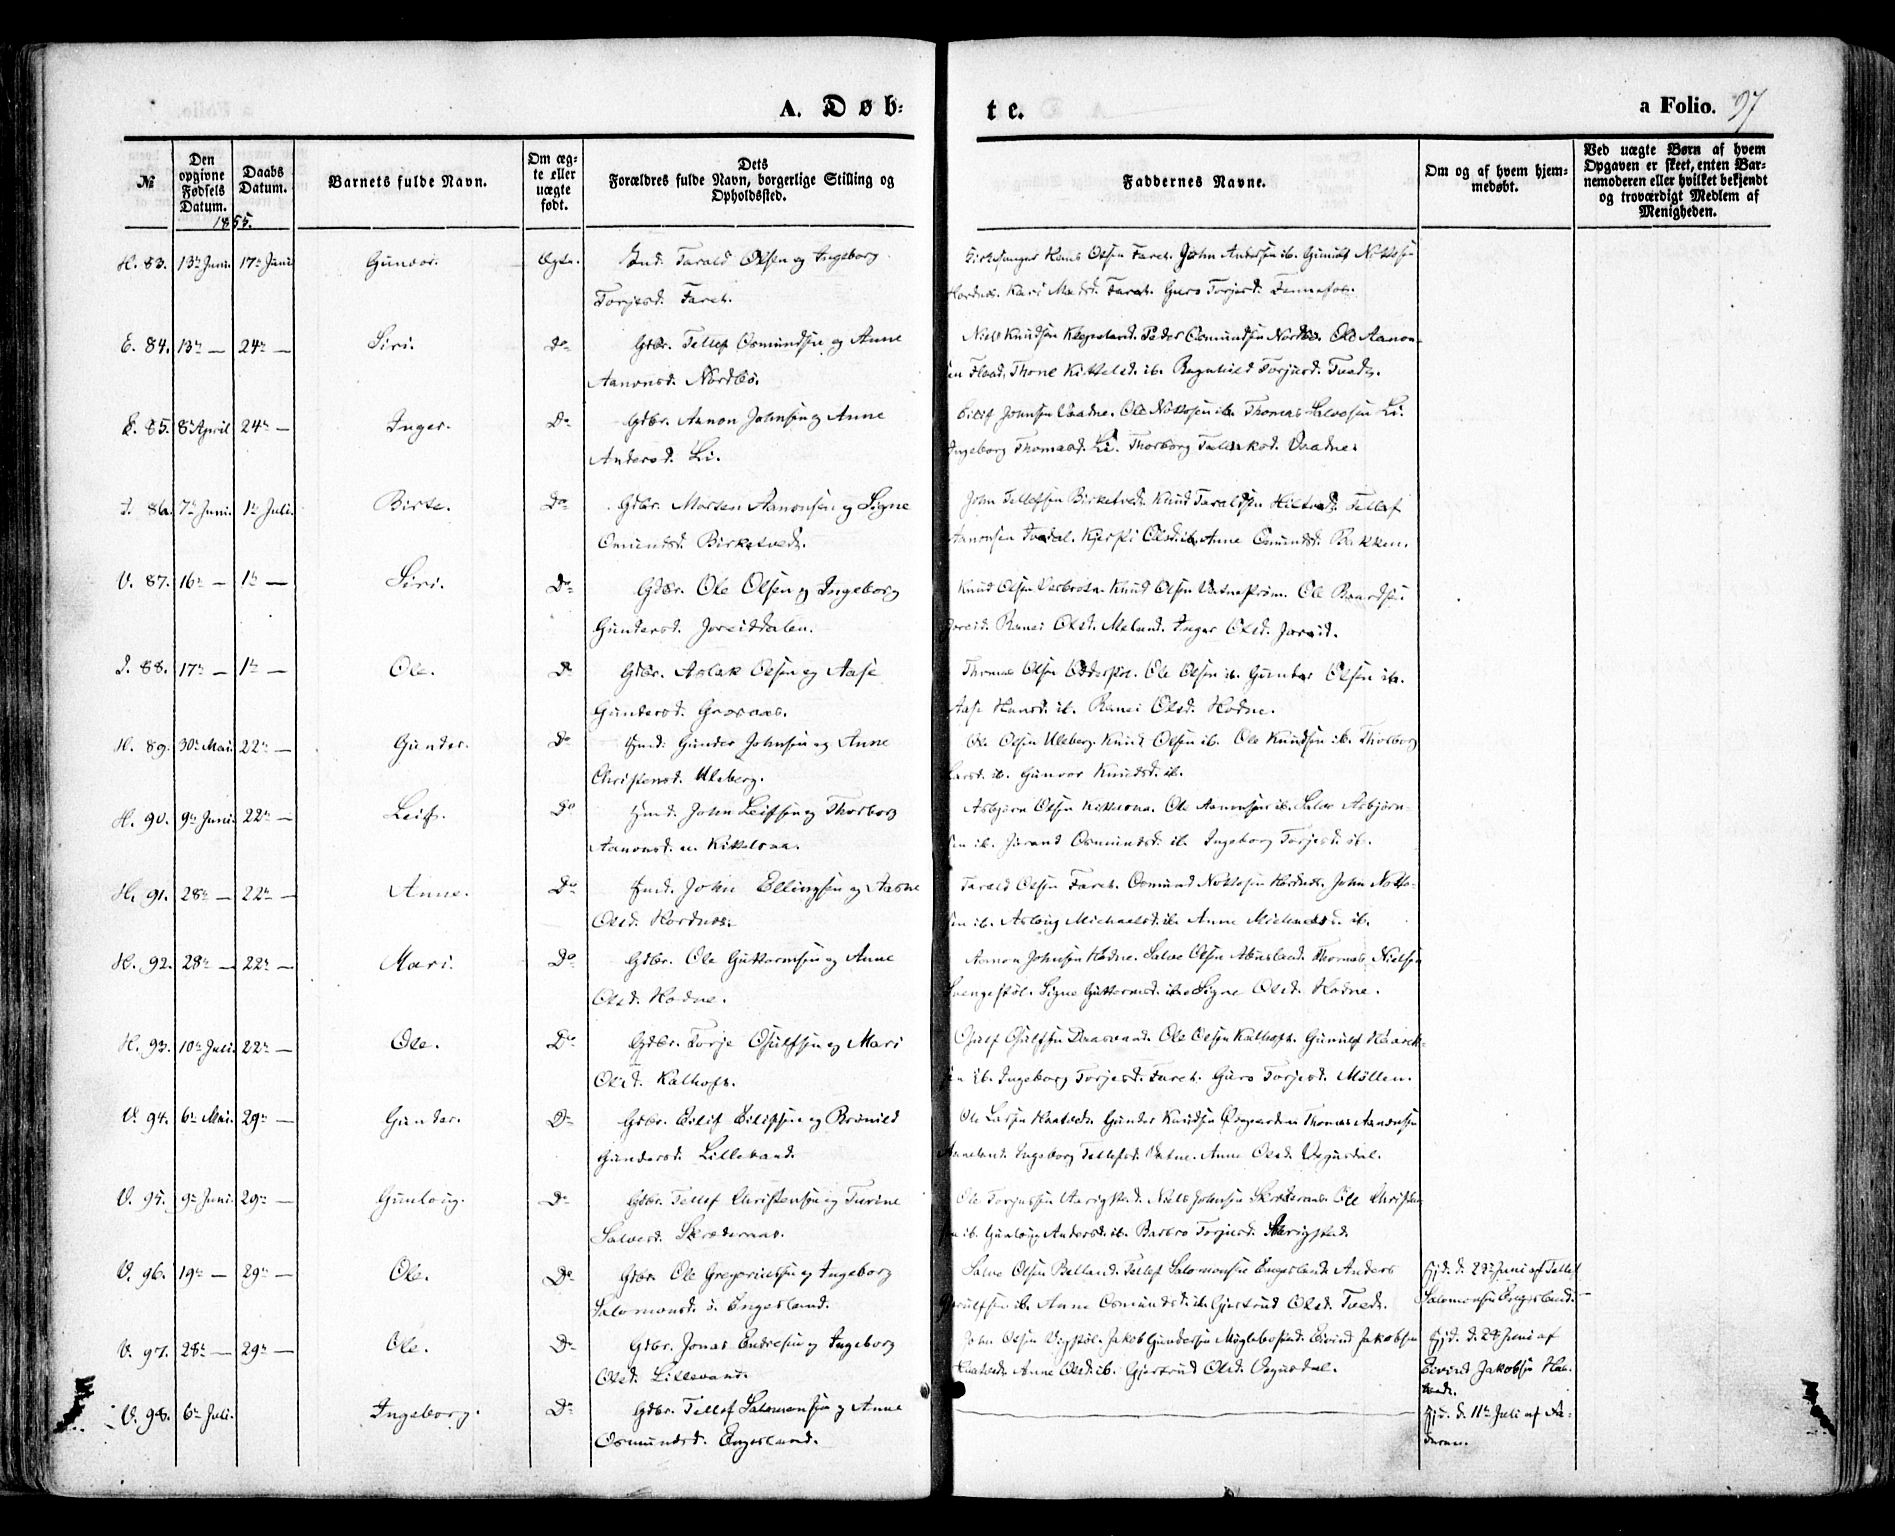 A. Døb-
te.
a Folio. 97
№
Den opgivne Fødsels Datum.
Daabs Datum.
Barnets fulde Navn.
Om ægte eller uægte født.
Dets Forældres fulde Navn, borgerlige Stilling og Opholdssted.
Faddernes Navne.
Om og af hvem hjemmedøbt.
Ved uægte Børn af hvem Opgaven er skeet, enten Barnemoderen eller hvilket bekjendt og troværdigt Medlem af Menigheden.
1855.
H. 83. 13de Juni. 17de Juni Gunvor. Ægte. Ind. Tarald Olsen og Ingeborg
Torjesd. Faret.
Kirkesanger Hans Olsen Faret. John Andersen ib. Gunulf Nottosen
Hordnes. Kari Madsd. Faret. Guro Torjesd. Fennefos.
E. 84. 13de — 24de — Siri. Do Gdbr. Tellef Osmundsen og Anne
Aanonsd. Nordbø.
Niels Knudsen Klepsland. Peder Osmundsen Nordbø. Ole Aanon-
sen Flaad. Thone Kittelsd. ib. Ragnhild Torjusd. Tvedt.
E. 85. 8de April 24de — Inger. Do Gdbr. Aanon Johnsen og Anne
Andersd. Li.
Eilif Johnsen Vaadne. Ole Nottosen ib. Thomas Salvesen Li.
Ingeborg Thomasd. Li. Thorborg Vaadne.
I. 86. 7de Juni. 1te Juli. Birte. Do Gdbr. Morten Aanonsen og Signe
Omundsd. Birketvedt.
John Tellefsen Birketvedt. Knud Taraldsen Tellef
Aanonsen Tvedal. Kjersti Olsd. ib. Anne Omundsd. Bakken.
V. 87. 16de — 1te — Siri. Do Gdbr. Ole Olsen og Ingeborg
Gundersd. Joreiddalen.
Knud Olsen Knud Olsen Vatnestrøm. Ole Baardsen
Joreid. Ranei Olsd. Meland. Inger Olsd. Joreid.
I. 88. 17de — 1te — Ole. Do Gdbr. Aslak Olsen og Aase
Gundersd. Graasaas.
Thomas Olsen Ole Olsen ib. Gunder Olsen ib.
Aase Hansd. ib. Ranei Olsd. Hodne.
H. 89. 30te Mai. 22de — Gunder. Do Ind. Gunder Johnsen og Anne
Christensd. Uleberg.
Ole Olsen Uleberg. Knud Olsen ib. Ole Knudsen ib. Thorborg
Larsd. ib. Gunvor Knudsd. ib.
H. 90. 9de Juni. 22de — Leif. Do Ind. John Leifsen og Thorborg
Aanonsd. Kittelsaa.
Asbjørn Olsen Kittelsaa. Ole Aanonsen ib. Salve Asbjørn-
sen ib. Jorand Osmundsd. ib. Ingeborg Torjesd. ib.
H. 91. 28de — 22de — Anne. Do Ind. John Ellingsen og Aasne
Olsd. Hordnes.
Tarald Olsen Faret. Osmund Nottosen Hordnes. John Notto-
sen ib. Aslaug Michaelsd. ib. Anne Michaelsd. ib.
H. 92. 28de — 22de — Mari. Do Gdbr. Ole Guttormsen og Anne
Olsd. Hodne.
Aanon Johnsen Hodne. Salve Olsen Abusland. Thomas Nielsen
Svengestøl. Signe Guttormsd. ib. Signe Olsd. Hodne.
H. 93. 10de Juli. 22de — Ole. Do Gdbr. Torje Osulfsen og Mari
Olsd. Kalhoft.
Osulf Osulfsen Daasvand. Ole Olsen Kalhoft. Gunulf
sen ib. Ingeborg Torjesd. Faret. Guro Torjesd. Møllen.
V. 94. 6te Mai. 29de — Gunder. Do Gdbr. Eilif Eilifsen og Brønild
Gundersd. Lillesand.
Ole Larsen Gunder Knudsen Thomas Aanonsen
Ingeborg Tellefsd. Vatne. Anne Olsd. Vegusdal.
V. 95. 9de Juni. 29de — Gunlaug. Do Gdbr. Tellef Christensen og Turine
Salvesd. Skrøderaas.
Ole Torjussen Niels Johnsen Skrøderaas. Ole Christen-
sen ib. Gunlaug Andersd. ib. Barbro Torjusd.
V. 96. 19de — 29de — Ole. Do Gdbr. Ole Gregoriussen og Ingeborg
Salomonsd. Engesland.
Salve Olsen Belland. Tellef Salomonsen Engesland. Anders
ib. Anne Osmundsd. ib. Gjertrud Olsd. Tvedt.
Hjd. d. 23de Juni af Tellef
Salomonsen Engesland.
V. 97. 28de — 29de — Ole. Do Gdbr. Jonas Endresen og Ingeborg
Olsd. Lillesand.
John Olsen Jakob Gundersen Møglebostad. Eivind Jakobsen
Anne Olsd. ib. Gjertrud Olsd. Vegusdal.
Hjd. d. 28de Juni af
Eivind Jakobsen
V. 98. 6te Juli. Ingeborg. Do Gdbr. Tellef Salomonsen og Anne
Osmundsd. Engesland.
Hjd. d. 11te Juli af Fa-
deren.